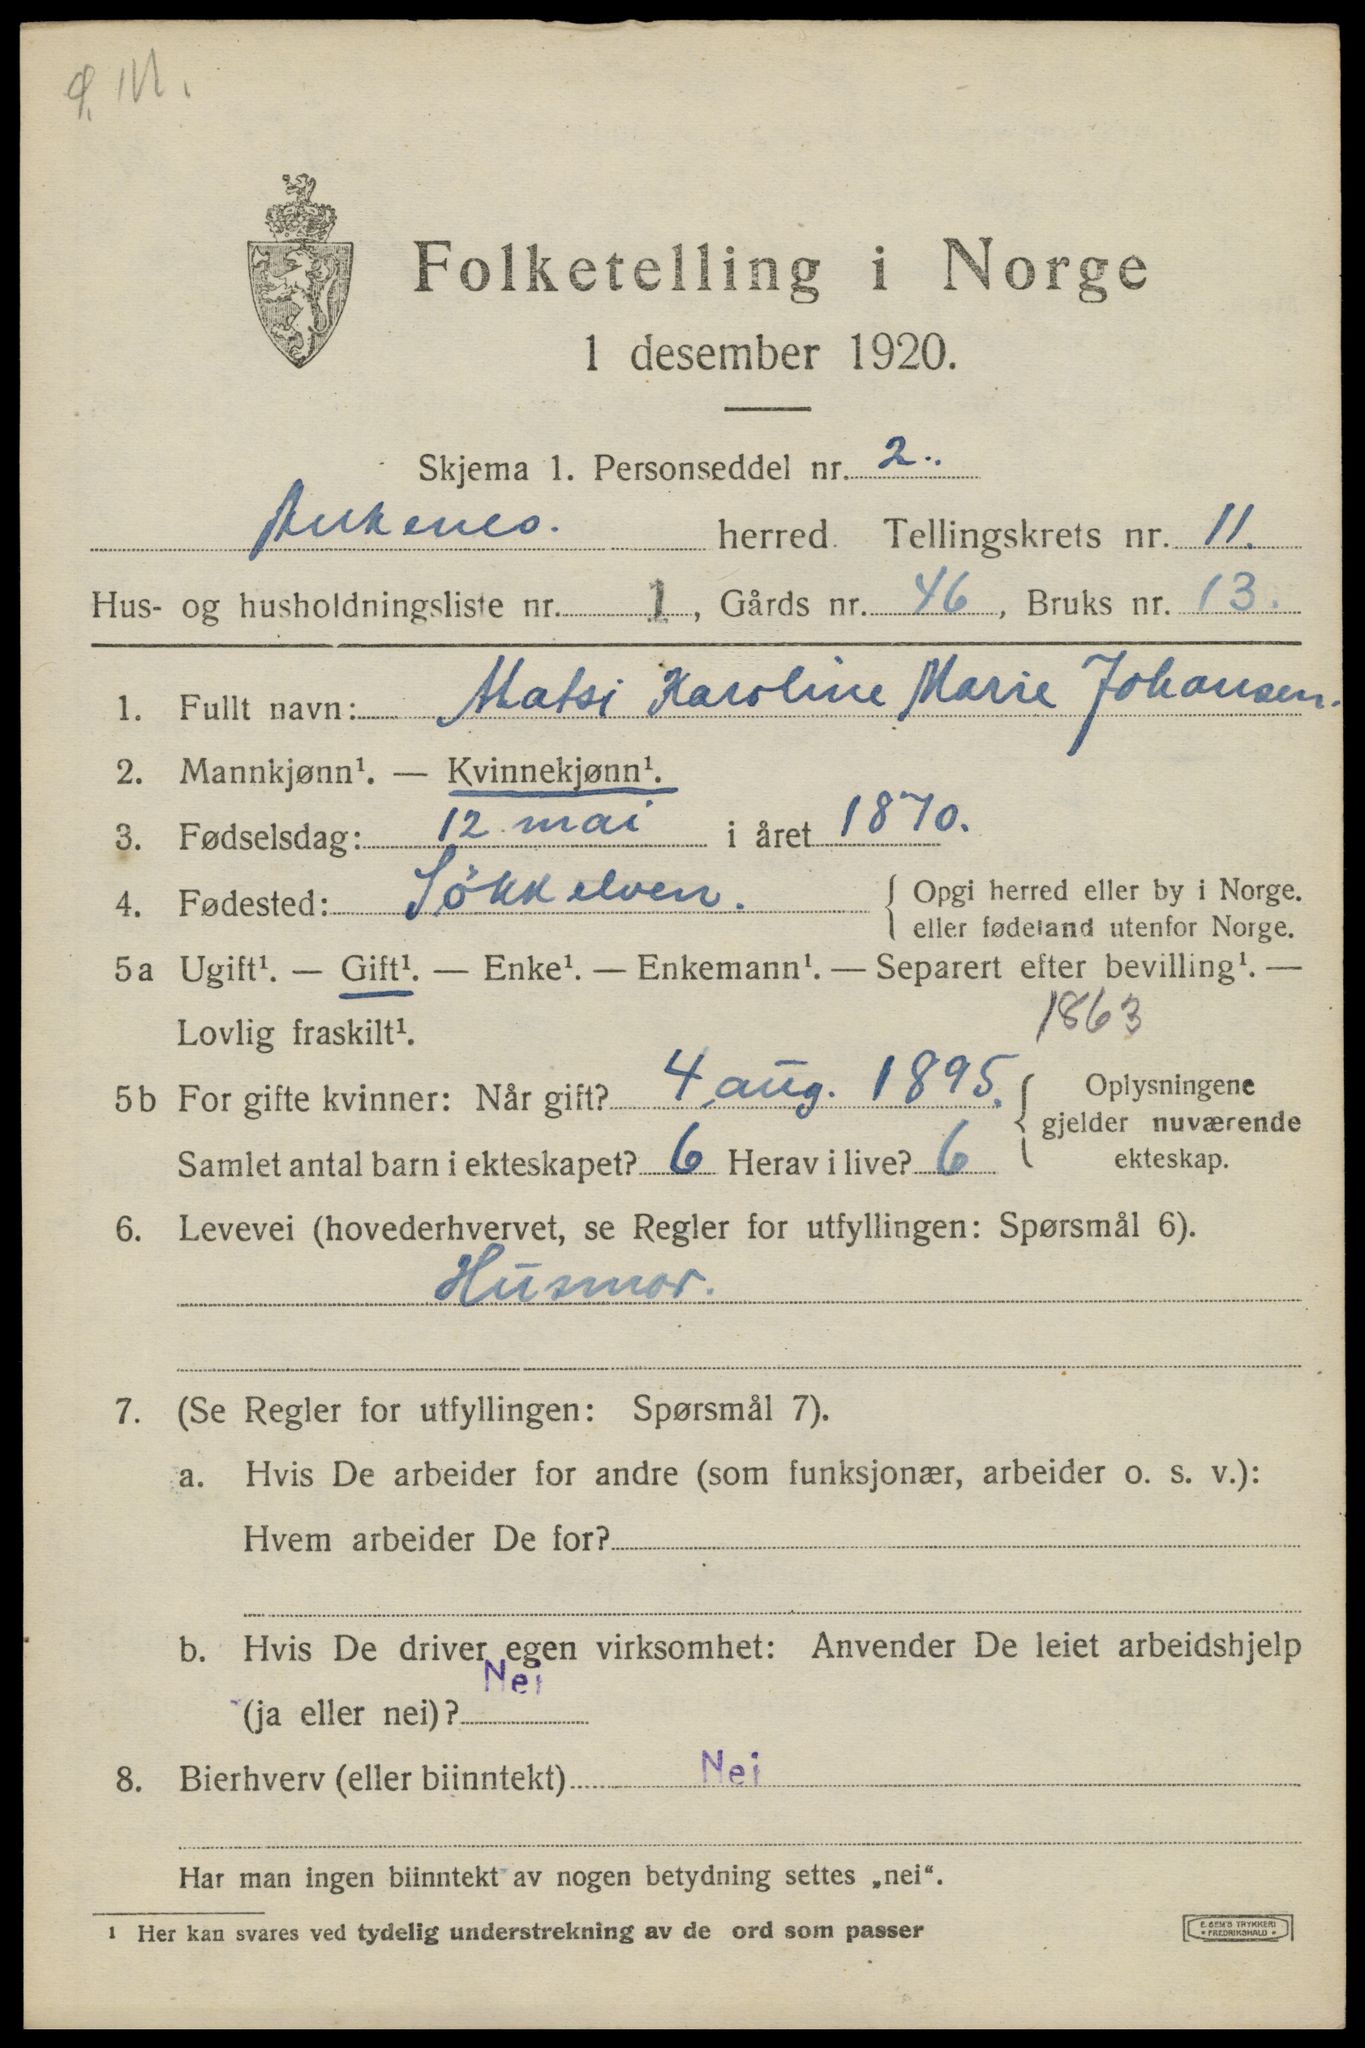 Folketelling i Norge
1 desember 1920.
Skjema 1. Personseddel nr. 2.
Ankenes. herred. Tellingskrets nr. 11.
Hus- og husholdningsliste nr. 1, Gårds nr. 46, Bruks nr. 13.
1. Fullt navn: Matsi Karoline Marie Johansen.
2. Mannkjønn¹. — Kvinnekjønn¹.
3. Fødselsdag: 12 mai i året 1870.
4. Fødested: Søkkelven. { Opgi herred eller by i Norge.
eller fødeland utenfor Norge.
5a Ugift¹. — Gift¹. — Enke¹. — Enkemann¹. — Separert efter bevilling¹. —
Lovlig fraskilt¹. 1863
5b For gifte kvinner: Når gift? 4 aug. 1895. { Oplysningene
gjelder nuværende
Samlet antal barn i ekteskapet? 6 Herav i live? 6 ekteskap.
6. Levevei (hovederhvervet, se Regler for utfyllingen: Spørsmål 6).
Husmor.
7. (Se Regler for utfyllingen: Spørsmål 7).
a. Hvis De arbeider for andre (som funksjonær, arbeider o. s. v.):
Hvem arbeider De for?
b. Hvis De driver egen virksomhet: Anvender De leiet arbeidshjelp
(ja eller nei)? Nei
8. Bierhverv (eller biinntekt) Nei
Har man ingen biinntekt av nogen betydning settes „nei“.
¹ Her kan svares ved tydelig understrekning av de ord som passer
E. SEM'S TRYKKERI
• FREDRIKSHALD •